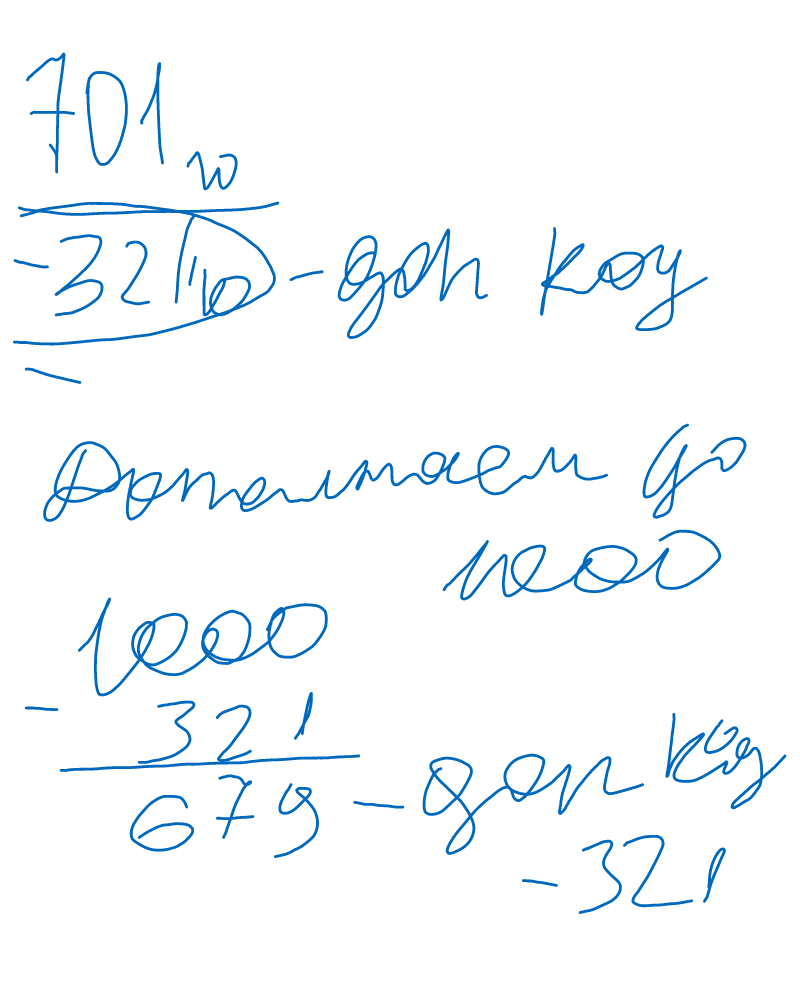 701₁₀
-321₁₀ - доп код
Дополняем до
1000
1000
- 321
679 - доп код
- 321